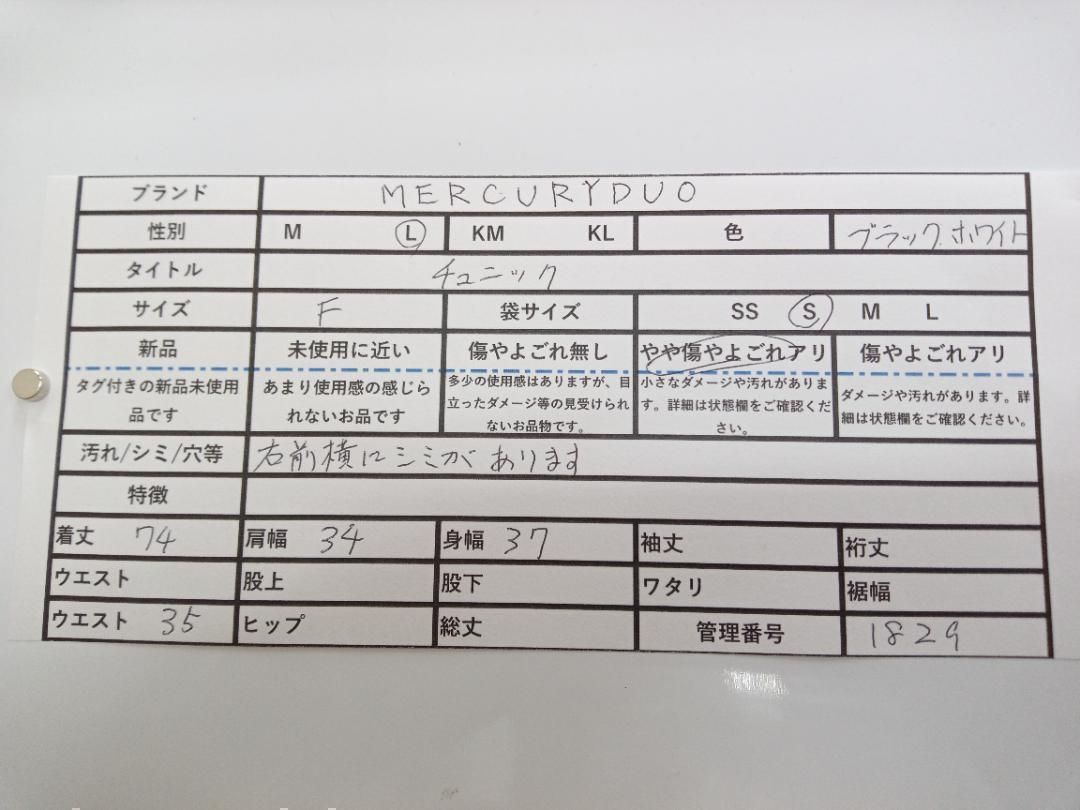 ブランド MERCURYDUO
性別 M L KM KL 色 ブラック.ホワイト
タイトル チュニック
サイズ F 袋サイズ SS S M L
新品 未使用に近い 傷やよごれ無し やや傷やよごれアリ 傷やよごれアリ
タグ付きの新品未使用
品です
あまり使用感の感じら
れないお品です
多少の使用感はありますが、目
立ったダメージ等の見受けられ
ないお品物です。
小さなダメージや汚れがありま
す。詳細は状態欄をご確認くだ
さい。
ダメージや汚れがあります。詳
細は状態欄をご確認ください。
汚れ/シミ/穴等 右前横にシミがあります
特徴
着丈 74 肩幅 34 身幅 37 袖丈 裄丈
ウエスト 股上 股下 ワタリ 裾幅
ウエスト 35 ヒップ 総丈 管理番号 1829